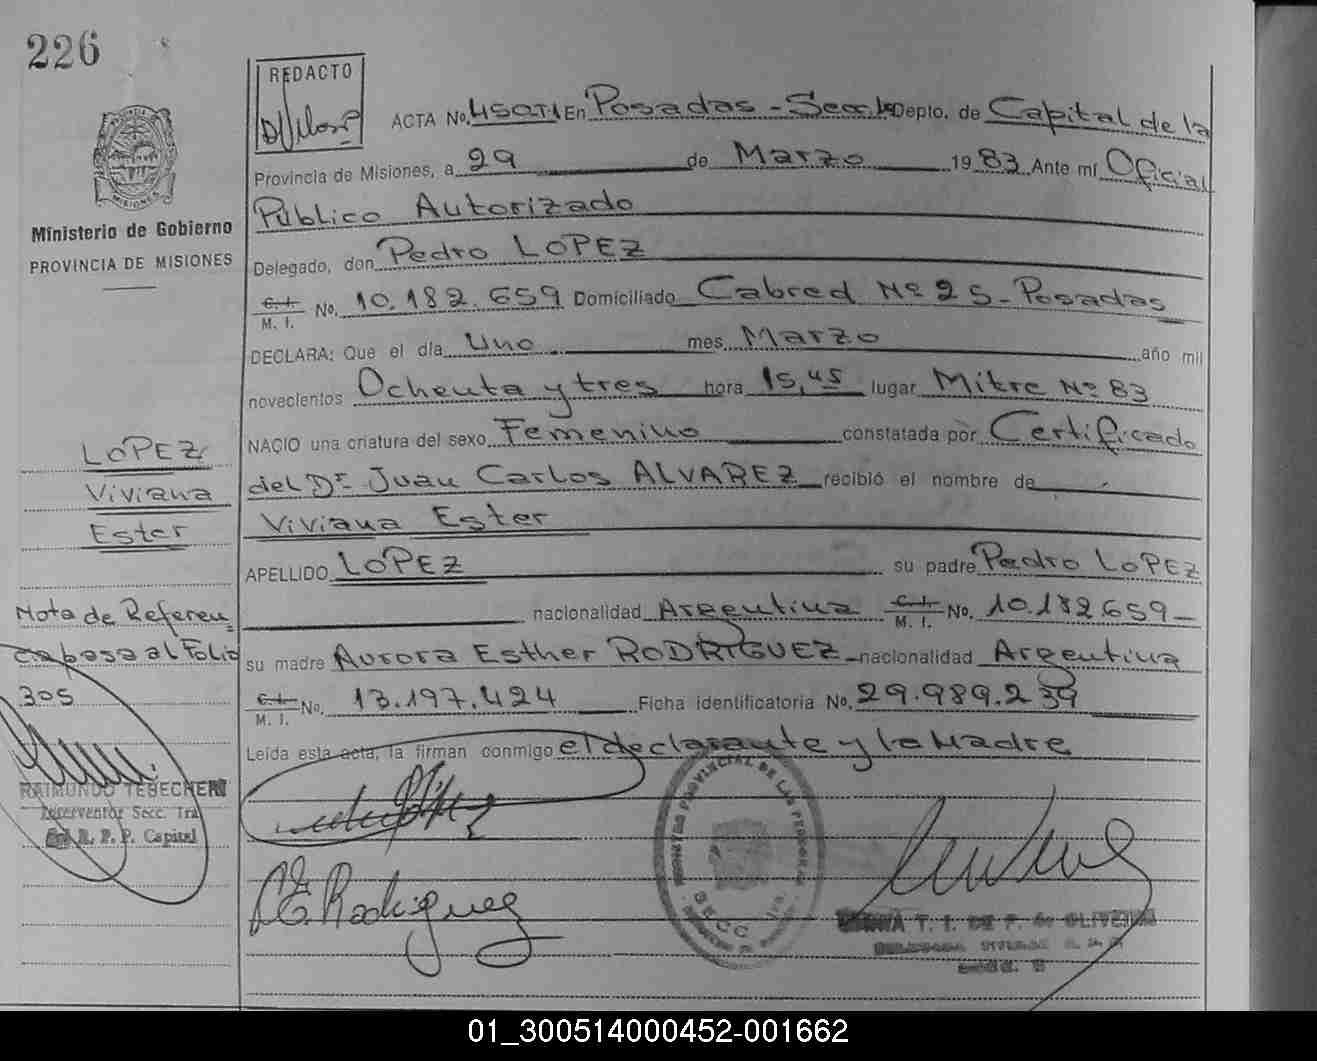 226
REDACTO
ACTA No. 450T1 En Posadas - Secc. 1a Depto. de Capital de la
Provincia de Misiones, a 29 de Marzo 1983 Ante mí Oficial
Público Autorizado
Delegado, don Pedro LOPEZ
C. I.
M. I. No. 10.182.659 Domiciliado Cabred Nº 25 - Posadas
DECLARA: Que el día Uno mes Marzo año mil
novecientos Ochenta y tres hora 15,45 lugar Mitre Nº 83
NACIO una criatura del sexo Femenino constatada por Certificado
del Dr. Juan Carlos ALVAREZ recibió el nombre de
Viviana Ester
APELLIDO LOPEZ su padre Pedro LOPEZ
nacionalidad Argentina C. I. M. I. No. 10.182.659
su madre Aurora Esther RODRIGUEZ nacionalidad Argentina
C. I.
M. I. No. 13.197.424 Ficha identificatoria No. 29.989.239
Leída esta acta, la firman conmigo el declarante y la Madre
Ministerio de Gobierno
PROVINCIA DE MISIONES
LOPEZ
Viviana
Ester
Nota de Referen
cia pasa al Folio
305
RAIMUNDO TEBECHERI
Interventor Secc. 1ra
del R. P. P. Capital
A E. Rodriguez
REGISTRO PROVINCIAL DE LAS PERSONAS
SECC. 1ra.
T. I. DE F. de OLIVEIRA
01_300514000452-001662